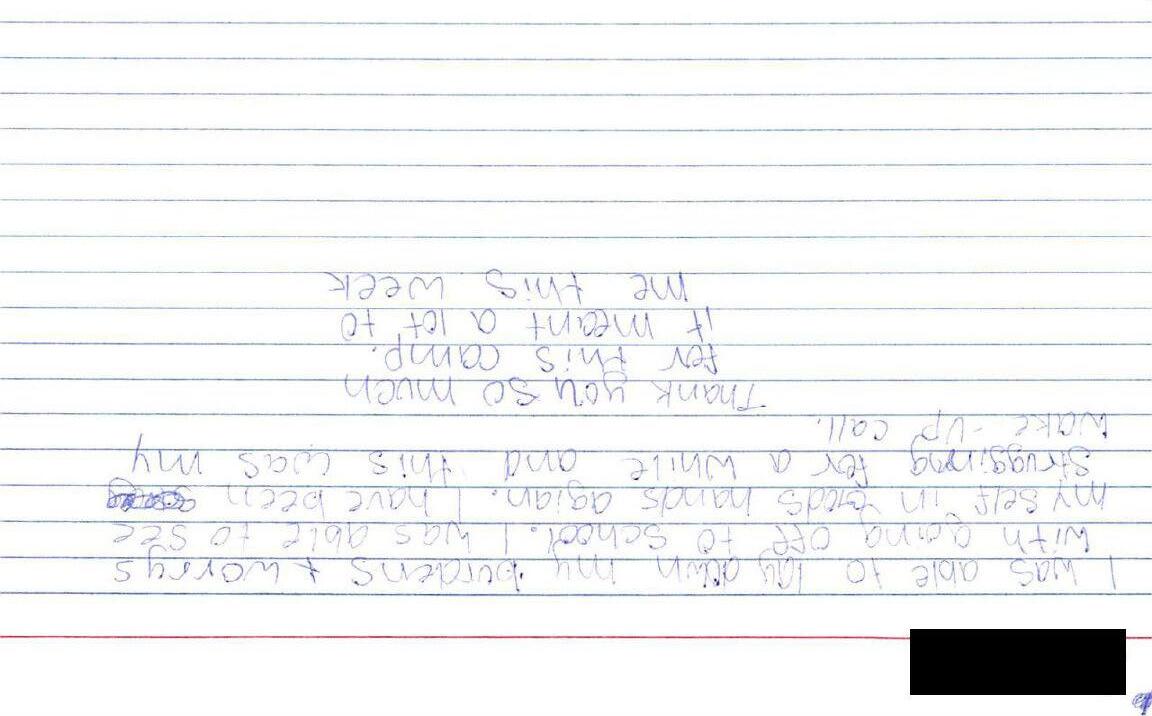 I was able to lay down my burdens + worrys
with going off to school. I was able to see
my self in Gods hands agian. I have been
struggling for a while and this was my
wake-up call.
Thank you so much
for this camp.
it meant a lot to
me this week